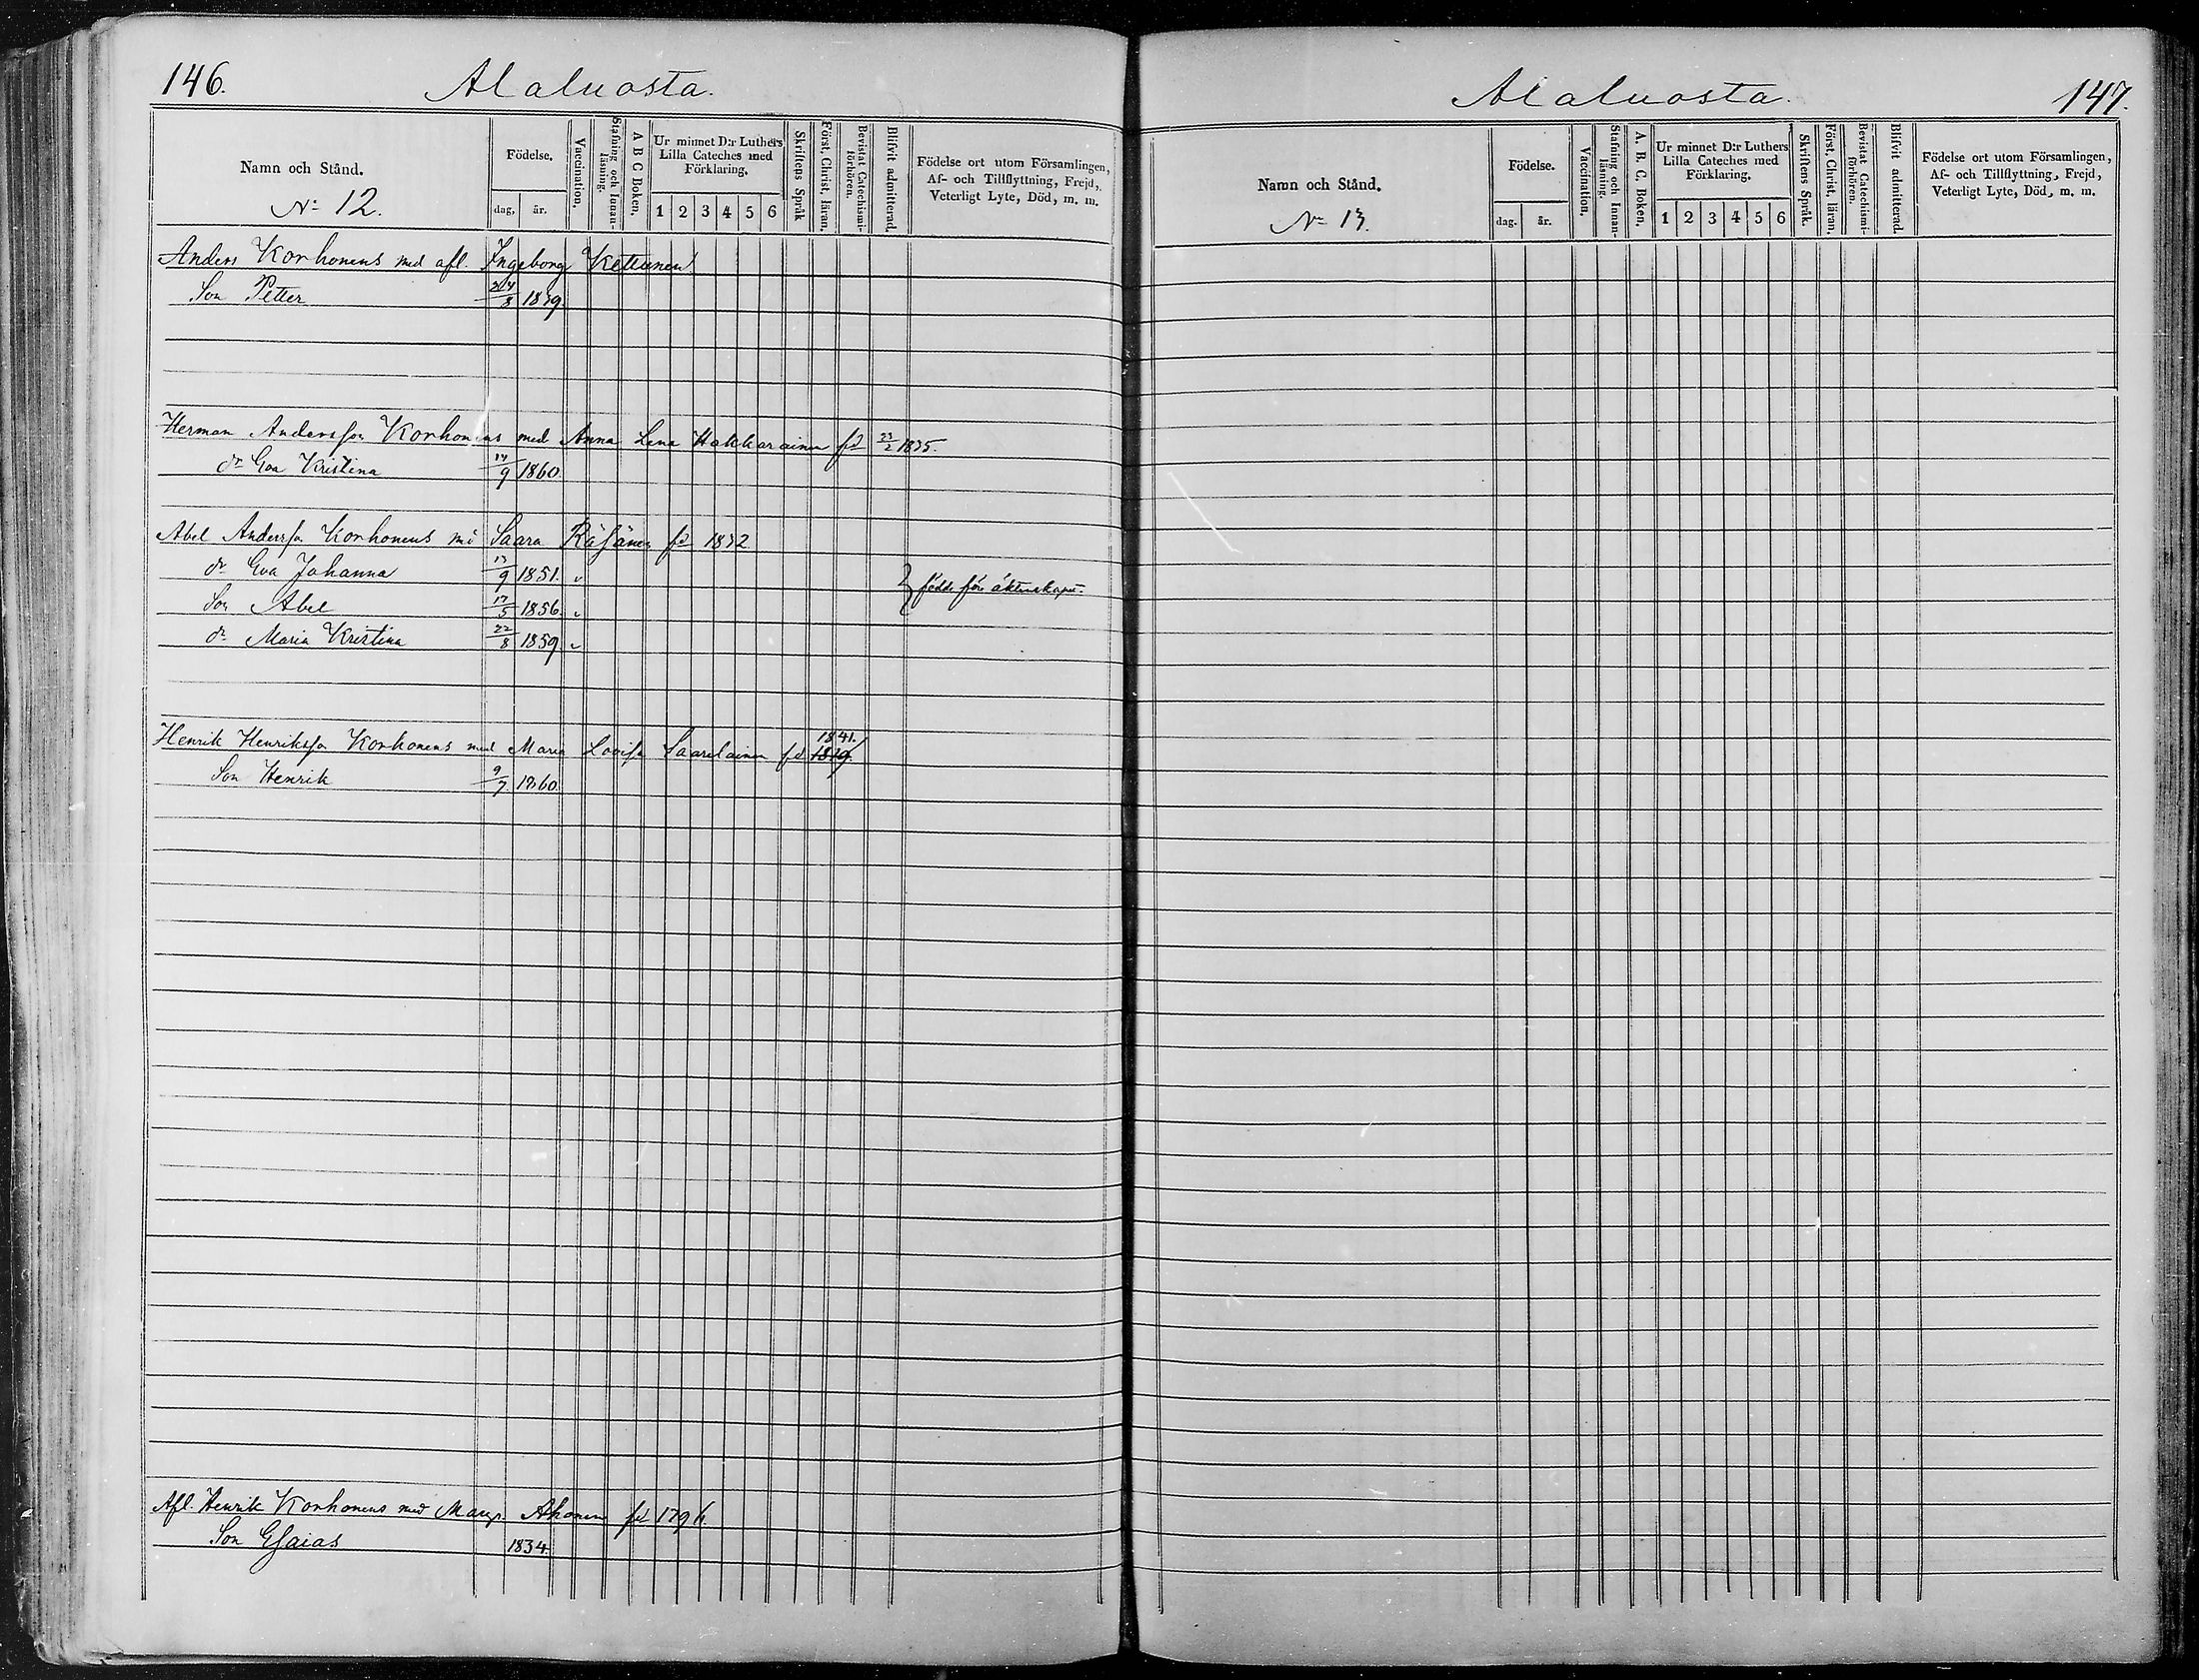 146.
Alaluosta.
Namn och Stånd.
N:o 12.
Födelse.
dag. år.
Vaccination.
Stafning och Innanläsning.
A B C Boken.
Ur minnet D:r Luthers Lilla Cateches med Förklaring.
1 2 3 4 5 6
Skriftens Språk
Först. Christ. läran.
Bevistat Catechismiförhören.
Blifvit admitterad.
Födelse ort utom Församlingen,
Af- och Tillflyttning, Frejd,
Veterligt Lyte, Död, m. m.
Anders Korhonens med afl. Ingeborg Kettunen
Son Petter 24/8 1839.
Herman Andersson Korhonens med Anna Lena Hakkarainen fd 23/2 1835.
dr Eva Kristina 14/9 1860.
Abel Andersson Korhonens md Saara Räsänen fd 1832
dr Eva Johanna 13/9 1851. v
Son Abel 17/5 1856. v
} födde före äktenskapet.
dr Maria Kristina 22/8 1859 v
Henrik Henriksson Korhonens med Maria Lovisa Saarelainen fd 1839 1841.
Son Henrik 9/7 1860.
Afl. Henrik Korhonens med Margr. Ahonen fd 1796.
Son Esaias 1834.
Alaluosta.
147.
Namn och Stånd.
N:o 13.
Födelse.
dag. år.
Vaccination.
Stafning och Innanläsning.
A. B. C. Boken.
Ur minnet D:r Luthers Lilla Cateches med Förklaring.
1 2 3 4 5 6
Skriftens Språk.
Först. Christ. läran.
Bevistat Catechismiförhören.
Blifvit admitterad.
Födelse ort utom Församlingen,
Af- och Tillflyttning, Frejd,
Veterligt Lyte, Död, m. m.